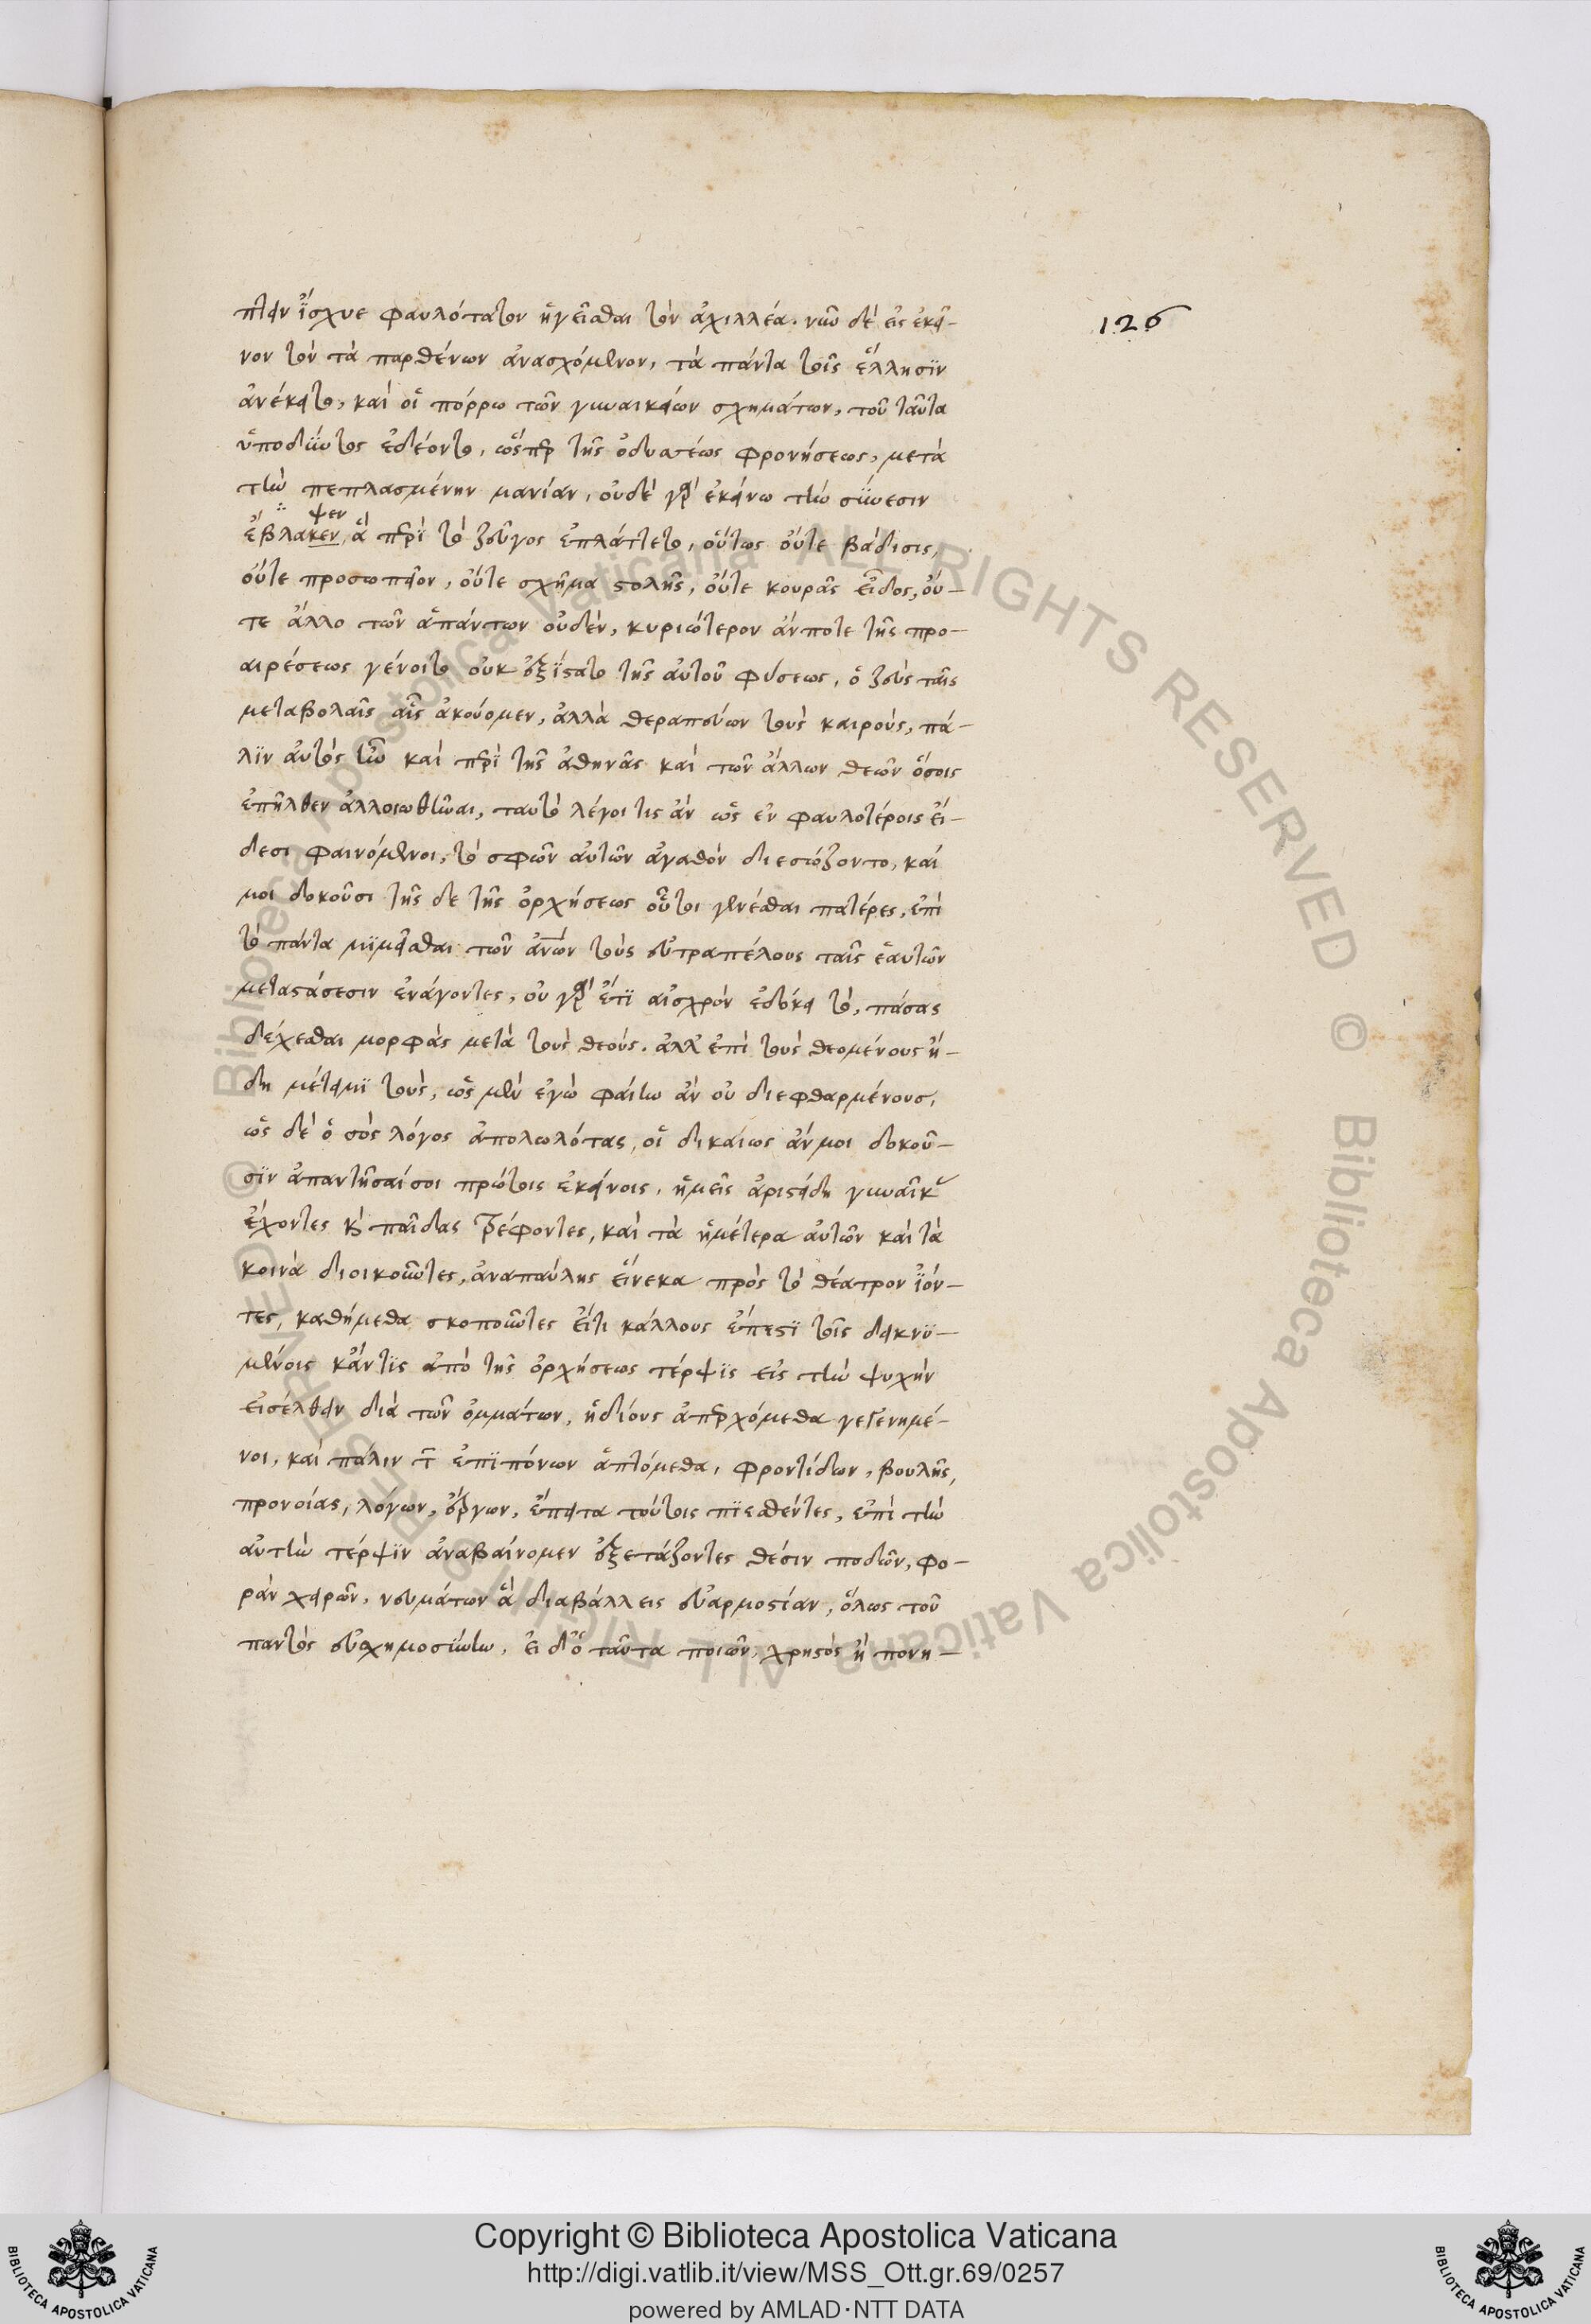 126
πτειν ἴσχυε φαυλότατον ἡγεῖσθαι τὸν ἀχιλλέα. νῦν δὲ εἰς ἐκεῖ-
νον τὸν τὰ παρθένων ἀνασχόμενον, τὰ πάντα τοῖς ἕλλησιν
ἀνέκειτο, καὶ οἱ πόρρω τῶν γυναικείων σχημάτων, τοῦ ταῦτα
ὑποδύντος ἐδέοντο, ὥσπερ τῆς ὀδυσσέως φρονήσεως, μετὰ
τὴν πεπλασμένην μανίαν, οὐδὲ γὰρ ἐκείνω τὴν σύνεσιν
ψεν
ἔβλακεν, ἃ περὶ τὸ ζεῦγος ἐπλάττετο, οὕτως οὔτε βάδισις,
οὔτε προσωπεῖον, οὔτε σχῆμα στολῆς, οὔτε κουρᾶς εἶδος, οὔ-
τε ἄλλο τῶν ἁπάντων οὐδὲν, κυριώτερον ἄν ποτε τῆς προ-
αιρέσεως γένοιτο οὐκ ἐξίστατο τῆς αὑτοῦ φύσεως, ὁ ζεὺς ταῖς
μεταβολαῖς αἷς ἀκούομεν, ἀλλὰ θεραπεύων τοὺς καιροὺς, πά-
λιν αὐτὸς ἦν καὶ περὶ τῆς ἀθηνᾶς καὶ τῶν ἄλλων θεῶν ὅσοις
ἐπῆλθεν ἀλλοιωθῆναι, ταυτὸ λέγοι τις ἂν ὡς ἐν φαυλοτέροις εἴ-
δεσι φαινόμενοι, τὸ σφῶν αὐτῶν ἀγαθὸν διεσώζοντο, καί
μοι δοκοῦσι τῆς δε τῆς ὀρχήσεως οὗτοι γενέσθαι πατέρες, ἐπὶ
τὸ πάντα μιμεῖσθαι τῶν ἀνων τοὺς εὐτραπέλους ταῖς ἑαυτῶν
μεταστάσεσιν ἐνάγοντες, οὐ γὰρ ἔτι αἰσχρὸν ἐδόκει τὸ, πάσας
δέχεσθαι μορφὰς μετὰ τοὺς θεούς. ἀλλ' ἐπὶ τοὺς θεομένους ἤ-
δη μέτειμι τοὺς, ὡς μὲν ἐγὼ φαίην ἂν οὐ διεφθαρμένους,
ὡς δὲ ὁ σὸς λόγος ἀπολωλότας, οἳ δικαίως ἄν μοι δοκοῦ-
σιν ἀπαντῆσαί σοι πρώτοις ἐκείνοις, ἡμεῖς ἀριστείδη γυναῖκ
ἔχοντες κ παῖδας τρέφοντες, καὶ τὰ ἡμέτερα αὐτῶν καὶ τὰ
κοινὰ διοικοῦντες, ἀναπαύλης εἵνεκα πρὸς τὸ θέατρον ἰόν-
τες, καθήμεθα σκοποῦντες εἴ τι κάλλους ἔπεστι τοῖς δεικνυ-
μένοις κἄν τις ἀπὸ τῆς ὀρχήσεως τέρψις εἰς τὴν ψυχὴν
εἰσέλθειν διὰ τῶν ὀμμάτων, ἡδίους ἀπερχόμεθα γεγενημέ-
νοι, καὶ πάλιν τ ἐπιπόνων ἁπτόμεθα, φροντίδων, βουλῆς,
προνοίας, λόγων, ἔργων, ἔπειτα τούτοις πιεσθέντες, ἐπὶ τὴν
αὐτὴν τέρψιν ἀναβαίνομεν ἐξετάζοντες θέσιν ποδῶν, φο-
ρὰν χειρῶν, νευμάτων ἃ διαβάλλεις εὐαρμοστίαν, ὅλως τοῦ
παντὸς εὐσχημοσύνην, εἰ δ' ὁ ταῦτα ποιῶν, χρηστὸς ἢ πονη-
Copyright © Biblioteca Apostolica Vaticana
http://digi.vatlib.it/view/MSS_Ott.gr.69/0257
powered by AMLAD·NTT DATA